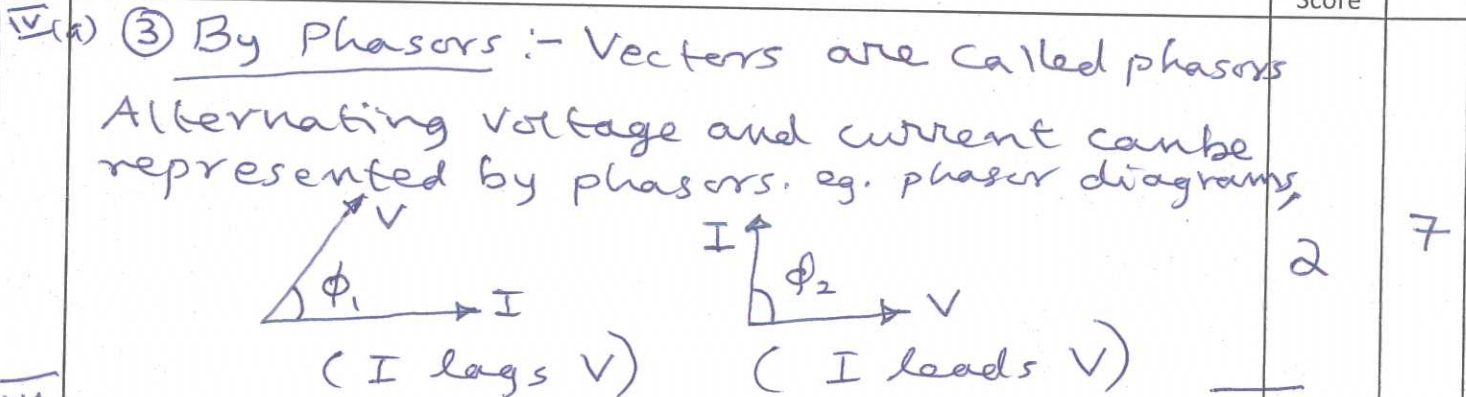 Score
IV(a) ③ By Phasors :- Vectors are called phasors
Alternating voltage and current canbe
represented by phasors. eg. phasor diagrams,
V
ϕ₁
I
(I lags V)
I
ϕ₂
V
(I leads V)
2
7